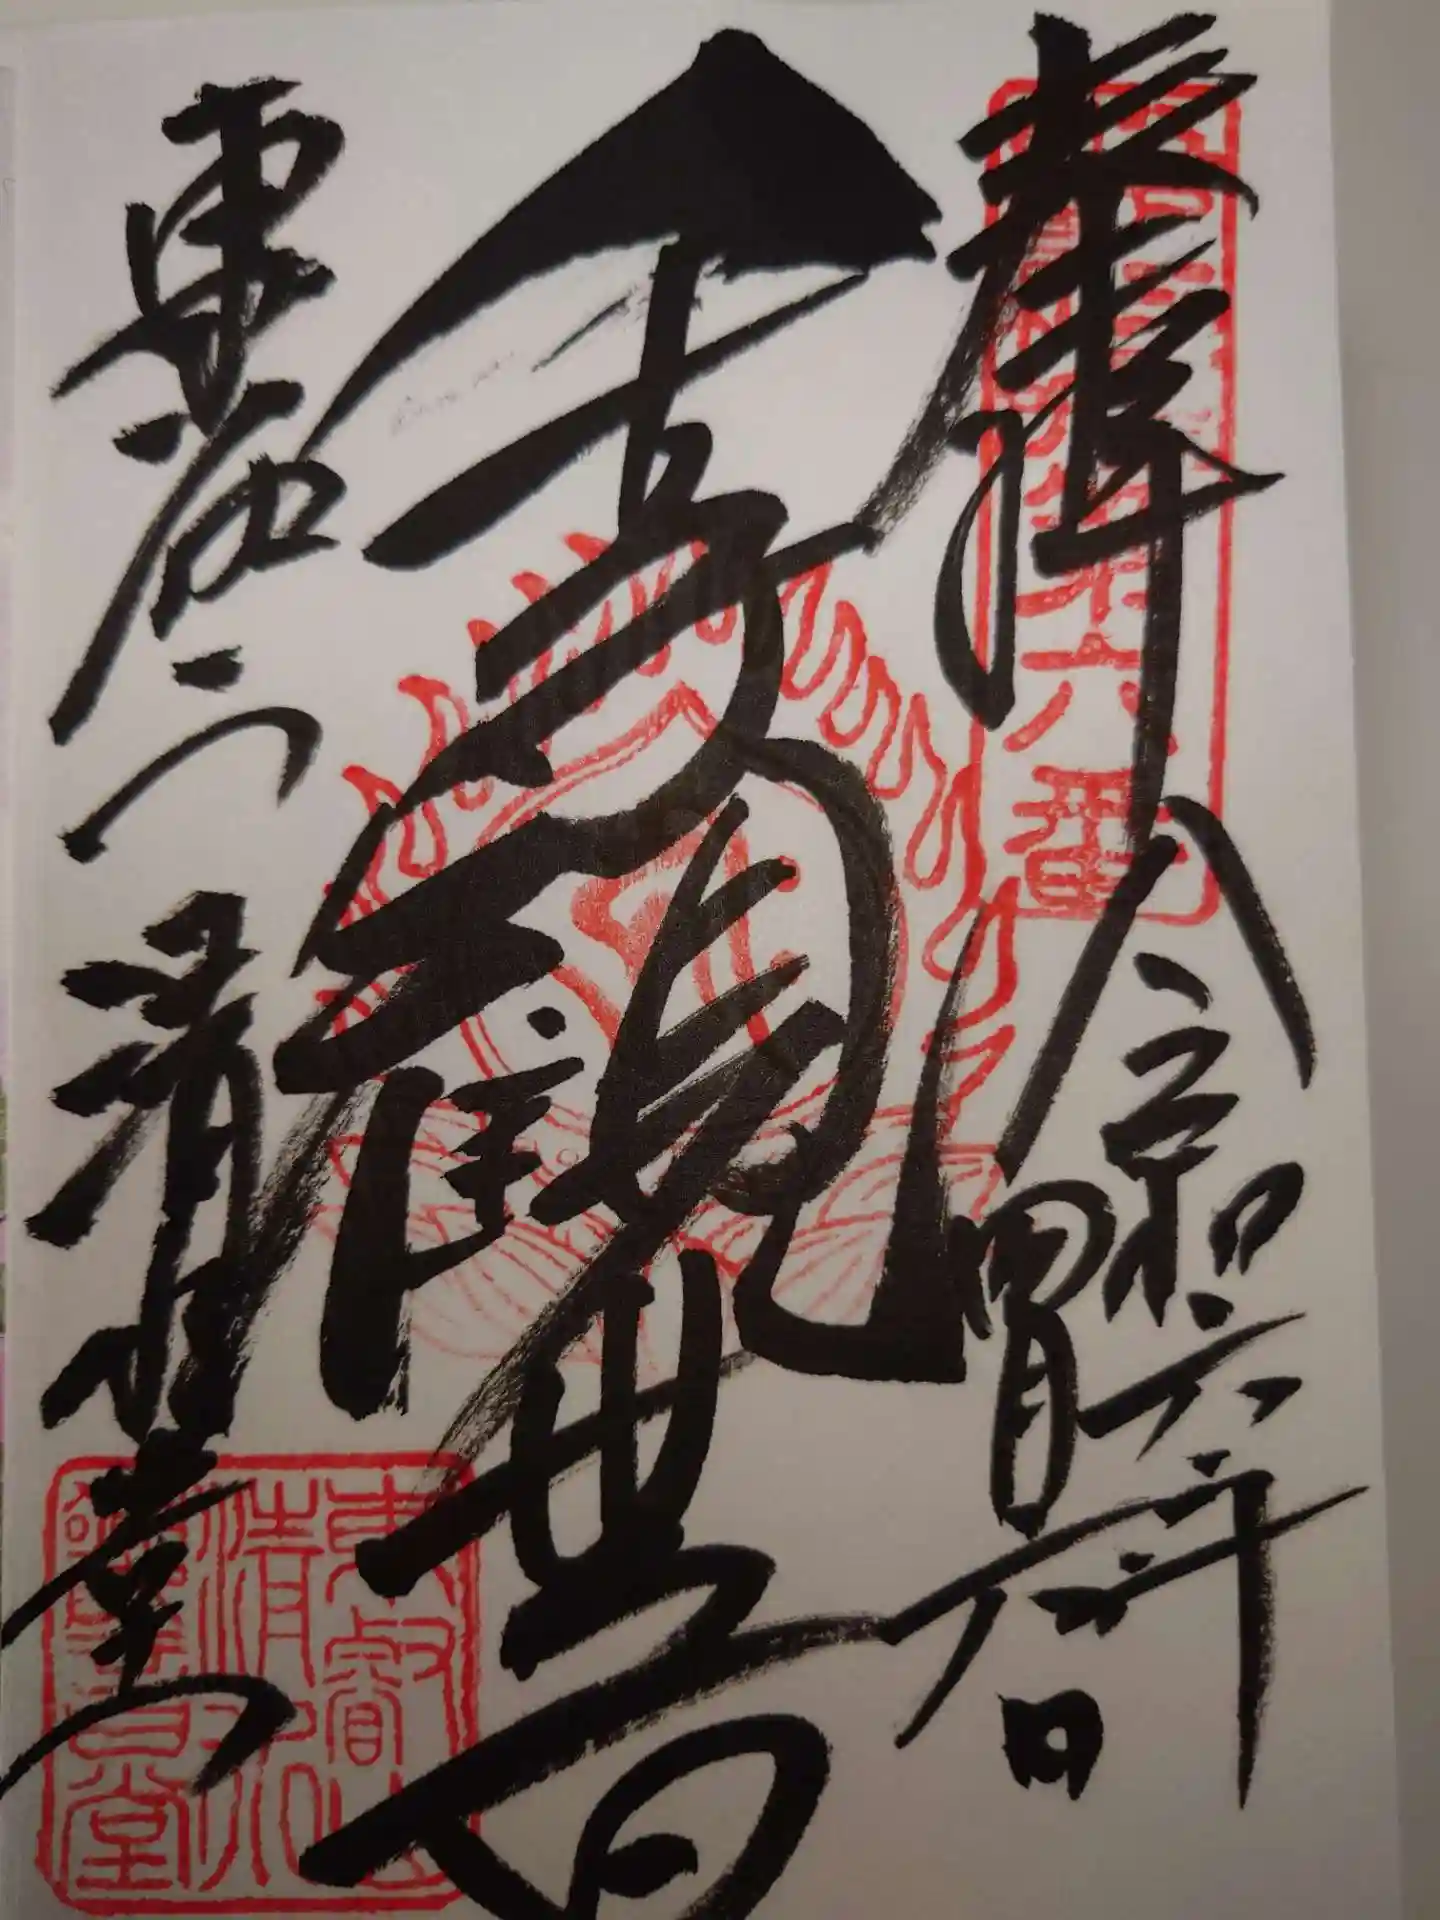 奉拝
令和六年
四月 日
千手観世音
東叡山 清水堂
六番
東叡山
清水
観音堂